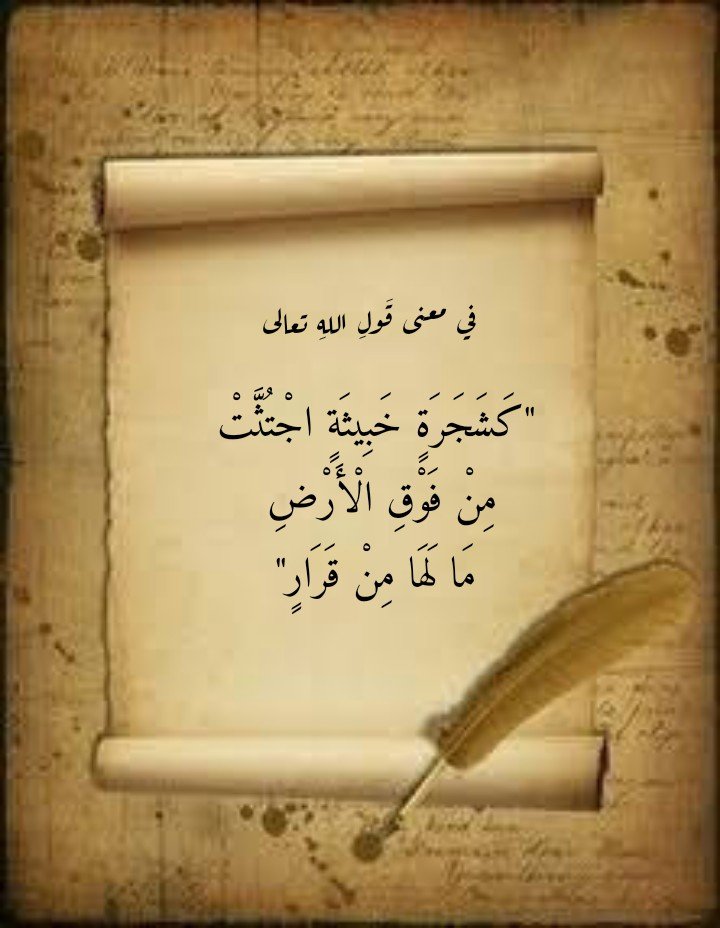 في معنى قَولِ اللهِ تعالى
"كَشَجَرَةٍ خَبِيثَةٍ اجْتُثَّتْ
مِنْ فَوْقِ الْأَرْضِ
مَا لَهَا مِنْ قَرَارٍ"